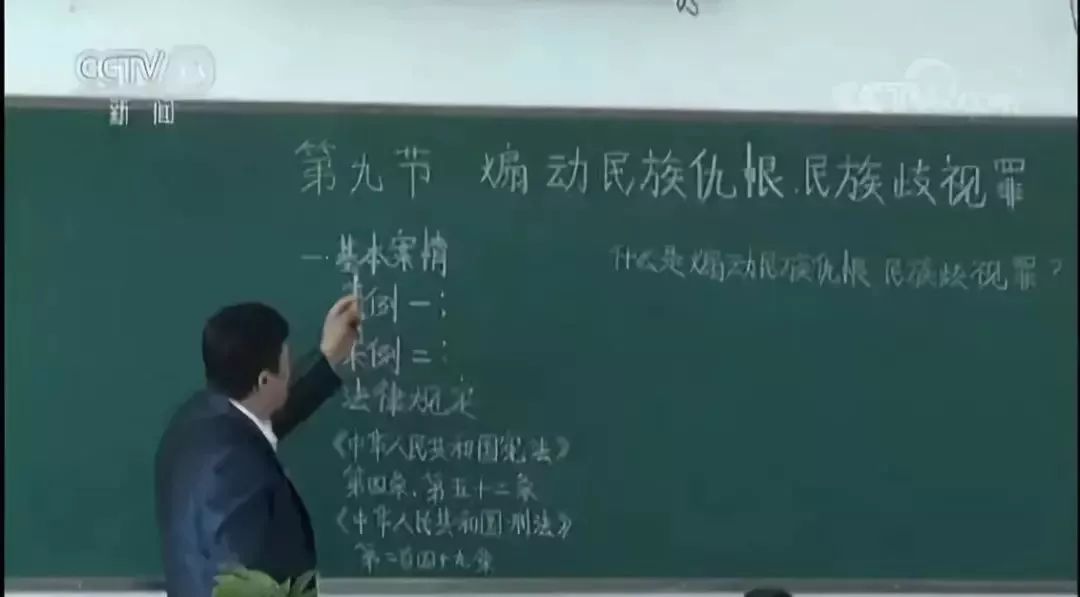 CCTV 13
新闻
第九节 煽动民族仇恨、民族歧视罪
一.基本案情
什么是煽动民族仇恨 民族歧视罪?
案例一:
案例二:
法律规定
《中华人民共和国宪法》
第四条、第五十二条
《中华人民共和国刑法》
第二百四十九条